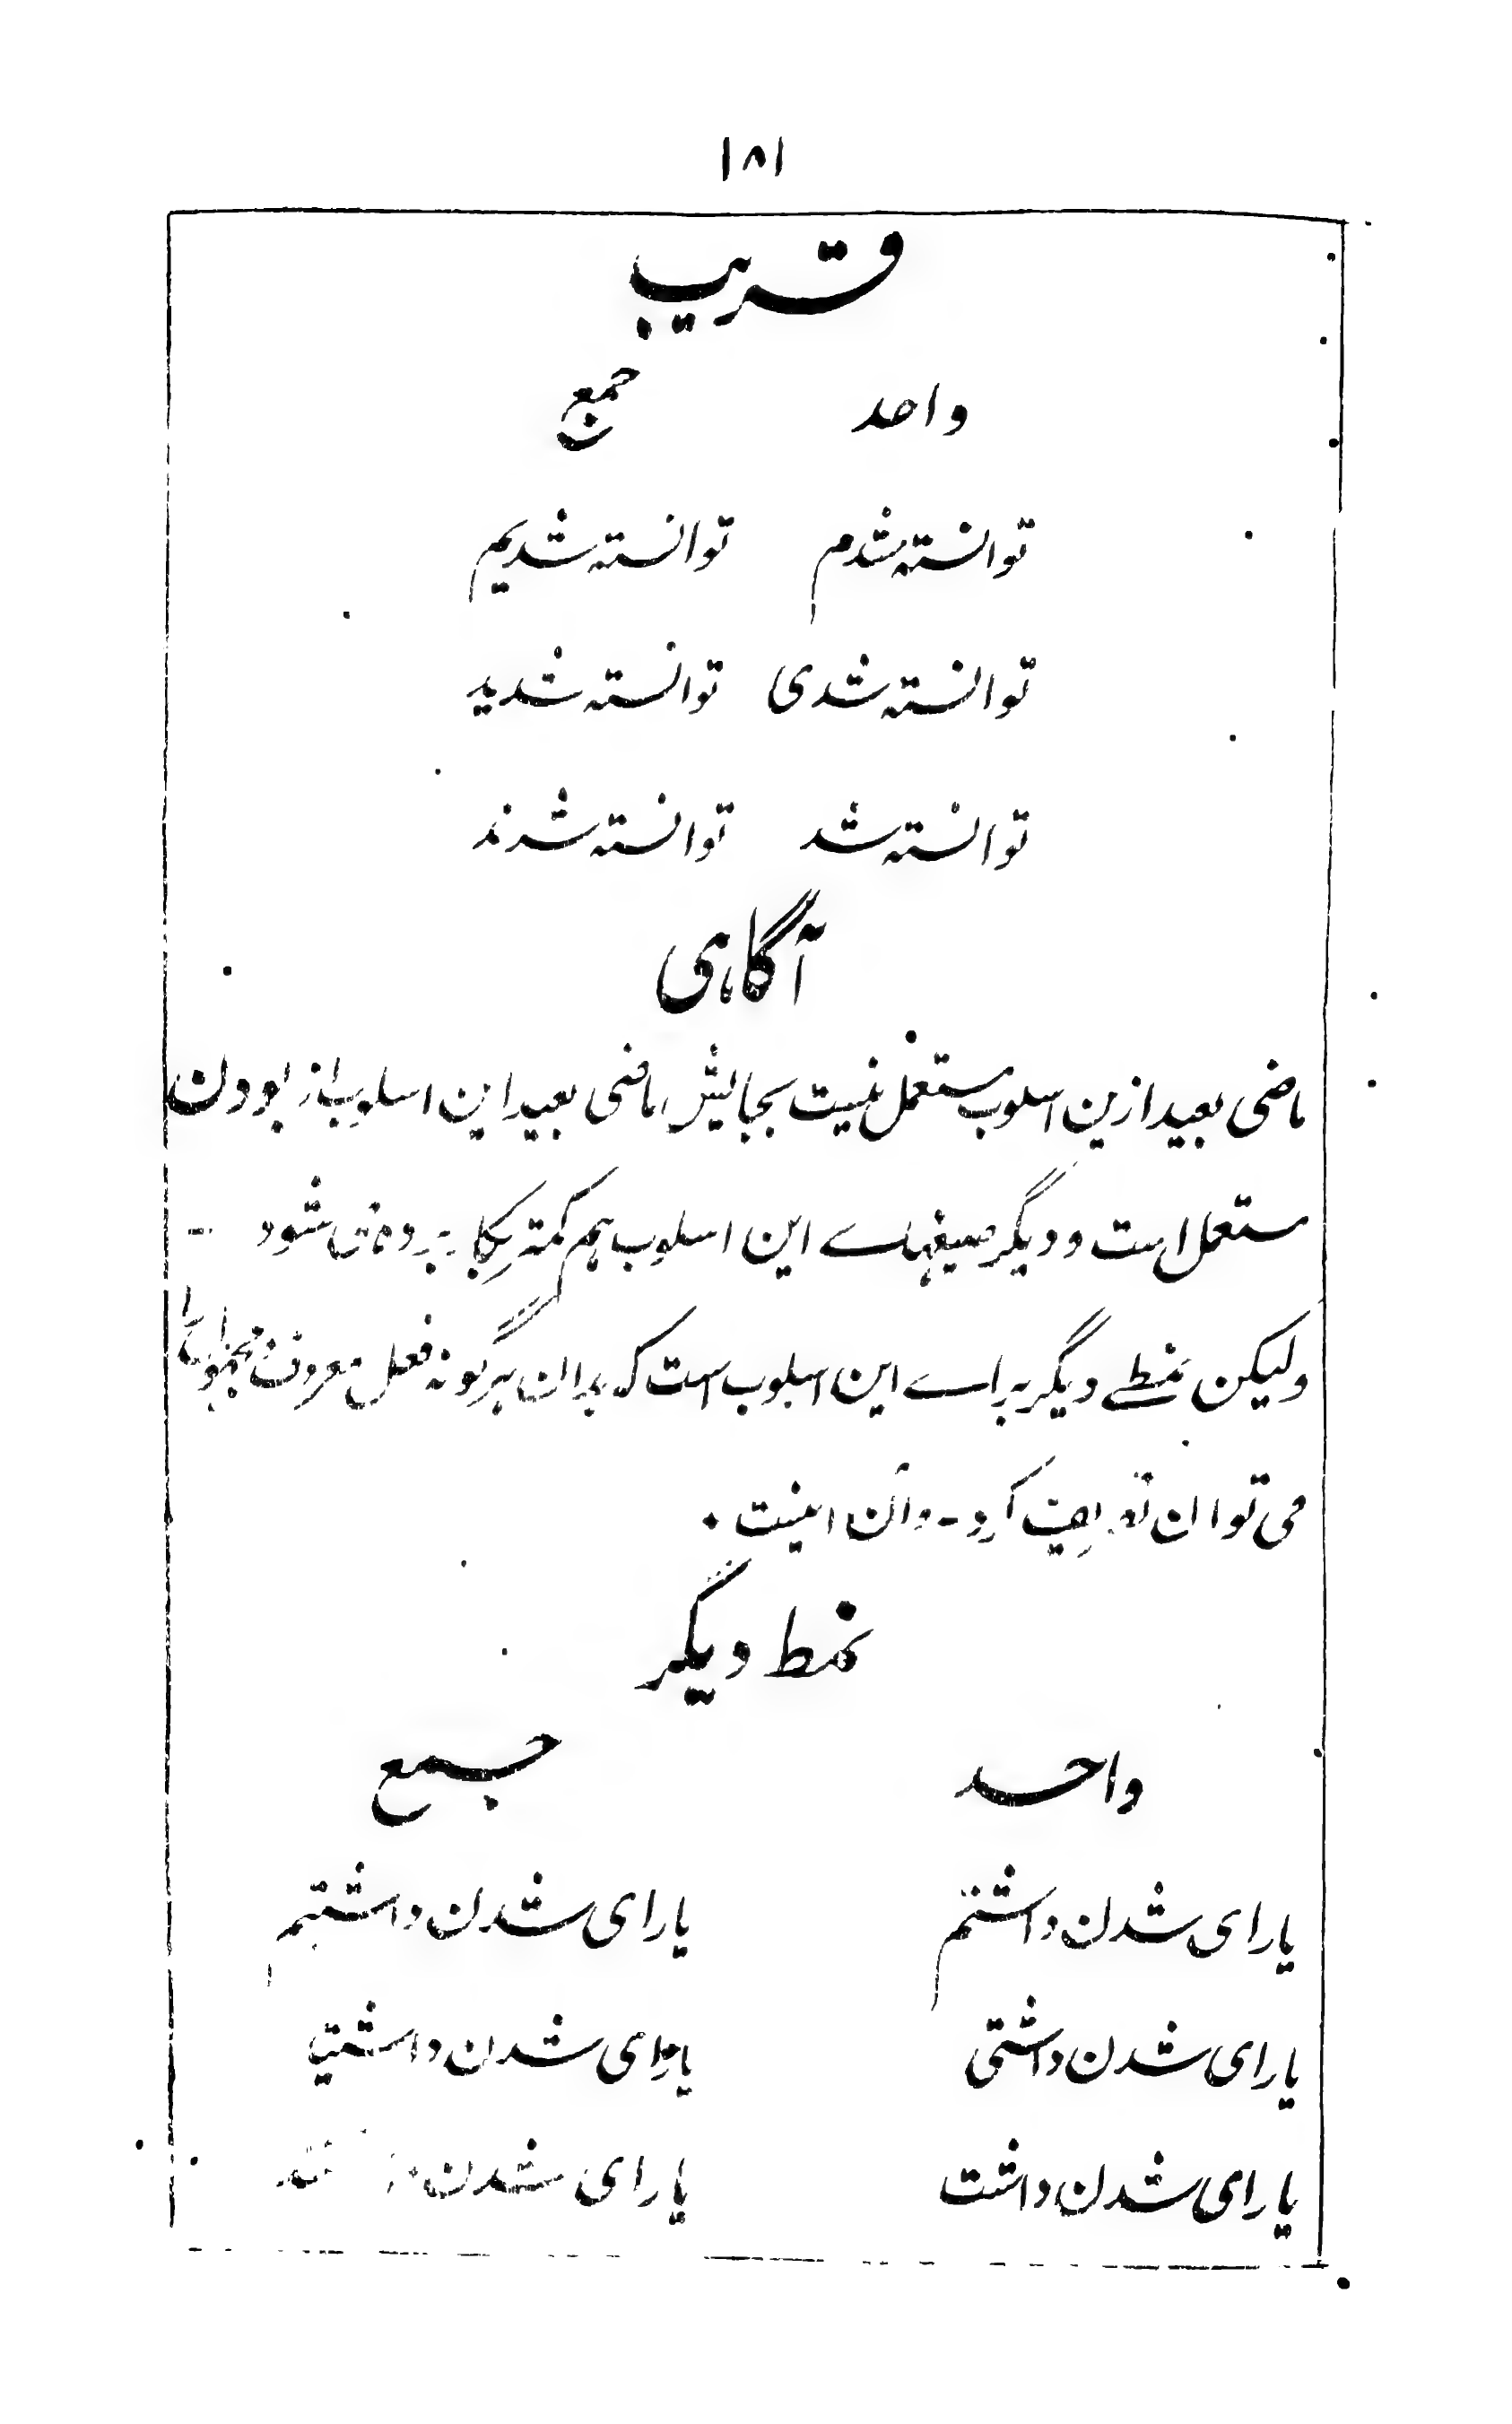 ۱۸۱
قریب
واحد جمع
توانسته شدم توانسته شدیم
توانسته شدی توانسته شدید
توانسته شد توانسته شدند
آگاہی
ماضی بعید ازین اسلوب مستعمل نیست بجایش ماضی بعید این اسلوب از بودن
مستعمل است و دیگر صیغہاے این اسلوب ہم کمتر بکار بردہ می شود -
ولیکن نمطے دیگر براے این اسلوب است کہ بدان ہر گونہ فعل معروف
می توان تعریف کرد - و آن اینست ۰
نمط دیگر
واحد جمع
یارای شدن داشتم یارای شدن داشتیم
یارای شدن داشتی یارای شدن داشتید
یارای شدن داشت یارای شدن